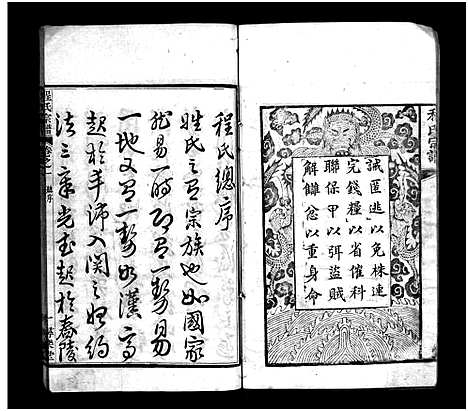 程氏宗譜
誡匿逃以免株連
完錢糧以省催科
聯保甲以弭盜賊
解讎忿以重身命
程氏總序
姓氏之有宗族也如國家
然易一時即有一勢易
一地又有一勢如漢高
起於手歸入関之始約
法三章光武起於舂陵
程氏宗譜
卷之一
總序